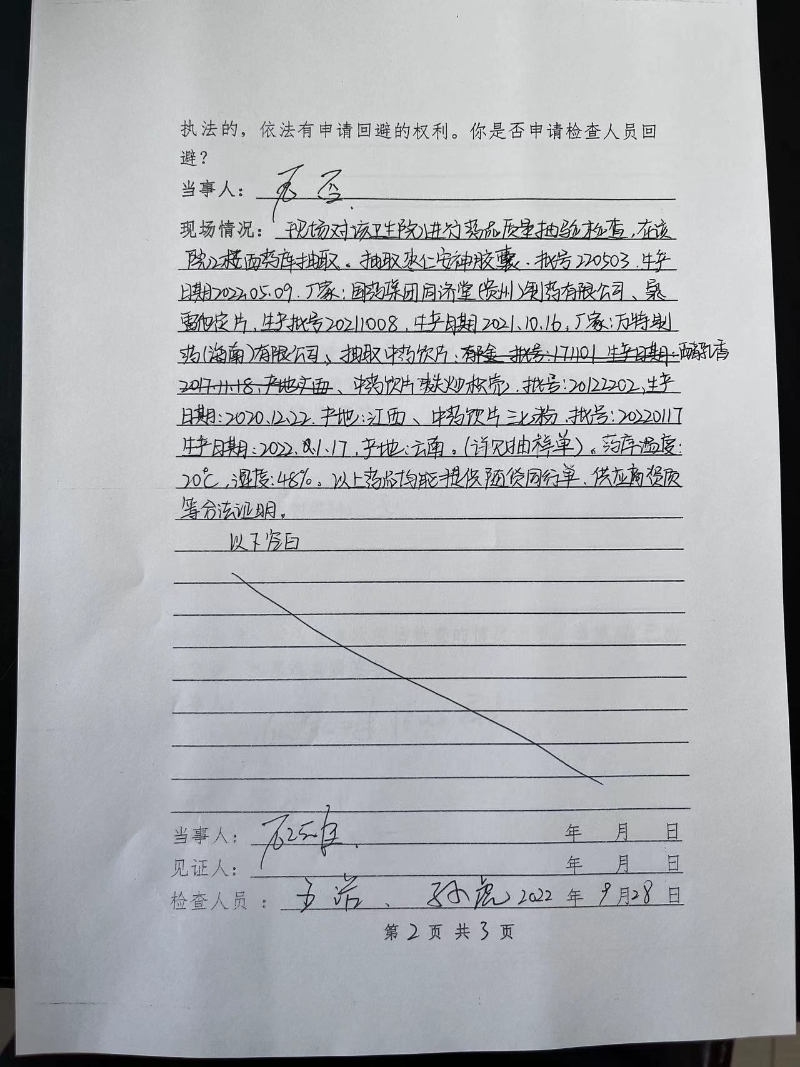 执法的，依法有申请回避的权利。你是否申请检查人员回
避？
当事人： 否
现场情况：现场对该卫生院进行药品质量抽验检查，在该
院2楼西药库抽取。抽取枣仁安神胶囊．批号220503．生产
日期2022.05.09．厂家：国药集团同济堂(贵州)制药有限公司、氯
雷他定片，生产批号20211008，生产日期2021.10.16，厂家：万特制
药(海南)有限公司、抽取中药饮片：郁金 批号：171101 生产日期：醋乳香
2017.11.18，产地广西、中药饮片麸炒枳壳，批号：20122202，生产
日期：2020.12.22．产地：江西、中药饮片三七粉．批号：20220117
生产日期：2022.01.17，产地：云南。(详见抽样单)。药库温度：
20℃，湿度：48%。以上药品均能提供随货同行单．供应商资质
等合法证明。
以下空白
当事人： 年 月 日
见证人： 年 月 日
检查人员： 、孙虎 2022年 9月28日
第 2 页 共 3 页